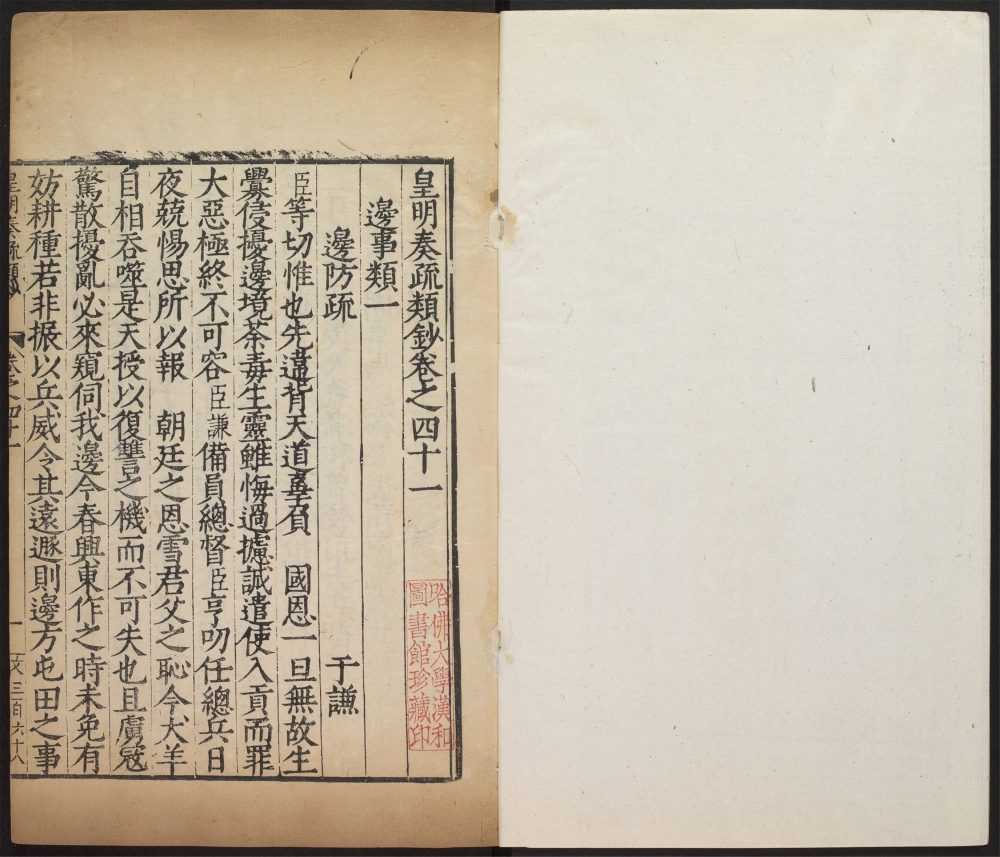 皇明奏疏類鈔卷之四十一
哈佛大學漢和
圖書館珍藏印
邊事類一
邊防疏　于謙
臣等切惟也先違背天道辜負　國恩一旦無故生
釁侵擾邊境荼毒生靈雖悔過攄誠遣使入貢而罪
大惡極終不可容臣謙備員總督臣亨叨任總兵日
夜兢惕思所以報　朝廷之恩雪君父之恥今犬羊
自相吞噬是天授以復讐之機而不可失也且虜寇
驚散擾亂必來窺伺我邊今春興東作之時未免有
妨耕種若非振以兵威令其遠遯則邊方屯田之事
皇明奏疏類鈔　卷之四十一　一　文三百六十八